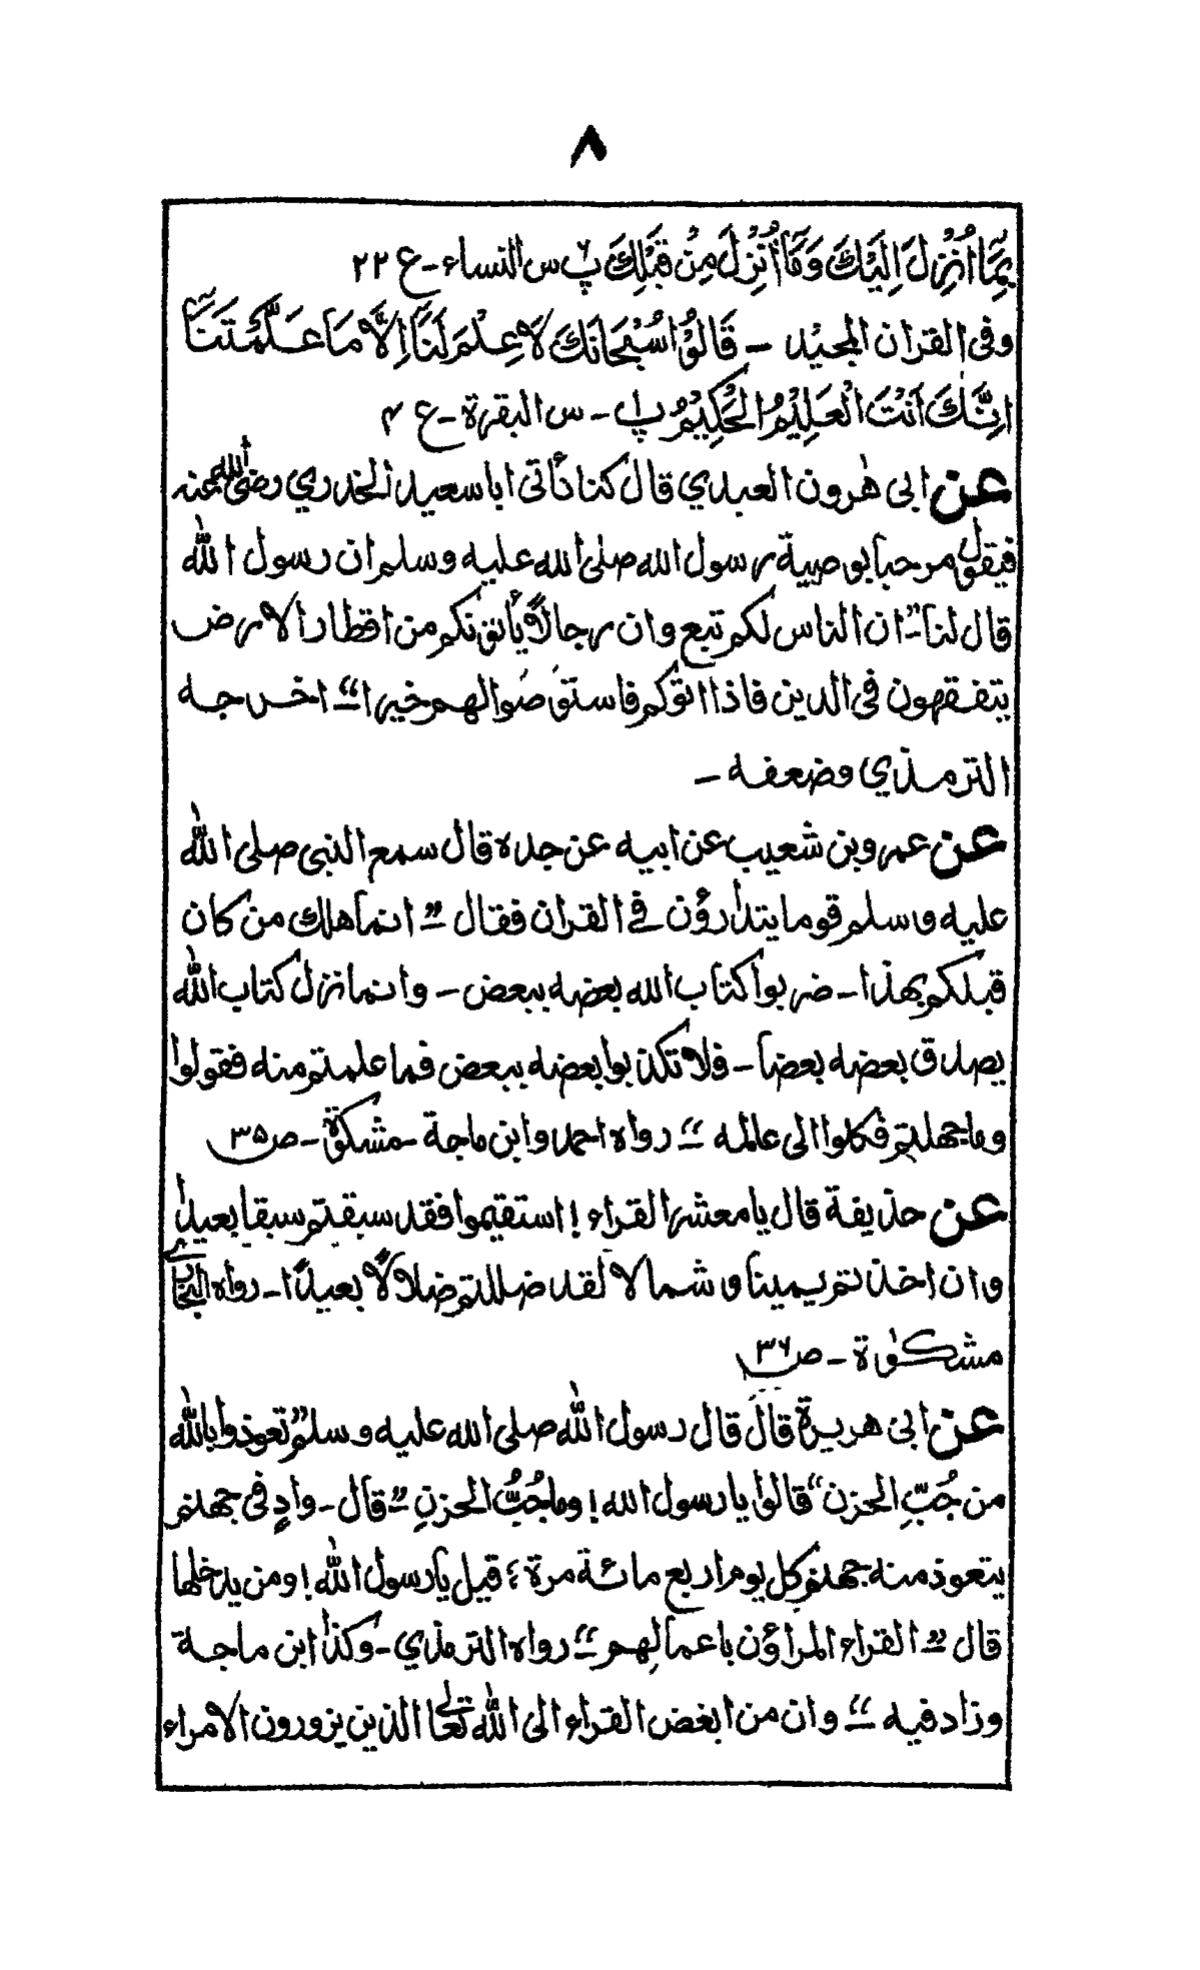 ٨
بِمَا اُنْزِلَ اِلَيْكَ وَمَا اُنْزِلَ مِنْ قَبْلِكَ پ٦ س النساء ـ ع ٢٢
وفى القران المجيد ـ قَالُوْا سُبْحَانَكَ لَا عِلْمَ لَنَا اِلَّا مَا عَلَّمْتَنَا
اِنَّكَ اَنْتَ الْعَلِيْمُ الْحَكِيْمُ پ١ ـ س البقرة ـ ع ٤
عن ابى هٰرون العبدي قال كنا نأتى ابا سعيد الخدري رضى الله عنه
فيقول مرحبا بوصية رسول الله صلى الله عليه وسلم ان رسول الله
قال لنا ” ان الناس لكم تبع وان رجالاً يأتونكم من اقطار الارض
يتفقهون فى الدين فاذا اتوكم فاستوصُوا لهم خيرا “ اخرجه
الترمذي وضعفه ـ
عن عمرو بن شعيب عن ابيه عن جده قال سمع النبى صلى الله
عليه وسلم قوما يتدارؤن فى القران فقال ” انما هلك من كان
قبلكم بهذا ـ ضربوا كتاب الله بعضه ببعض ـ وانما نزل كتاب الله
يصدق بعضه بعضا ـ فلا تكذبوا بعضه ببعض فما علمتم منه فقولوا
وما جهلتم فكلوا الى عالمه “ رواه احمد وابن ماجة ـ مشكوٰة ـ ص ٣٥
عن حذيفة قال يا معشر القراء ! استقيموا فقد سبقتم سبقا بعيدا
وان اخذتم يمينا و شمالا لقد ضللتم ضلالاً بعيداً ـ رواه البخارى
مشكوٰة ـ ص ٣٦
عن ابى هريرة قال قال رسول الله صلى الله عليه وسلم ” تعوذوا بالله
من جُبِّ الحزن “ قالوا يا رسول الله ! وما جُبُّ الحزنِ ” قال ـ وادٍ فى جهنم
يتعوذ منه جهنم كل يوم اربع مائة مرة ؛ قيل يا رسول الله ! ومن يدخلها
قال ” القراء المراؤن باعمالِهم “ رواه الترمذي ـ وكذا ابن ماجة
وزاد فيه “ وان من ابغض القراء الى الله تعالى الذين يزورون الامراء